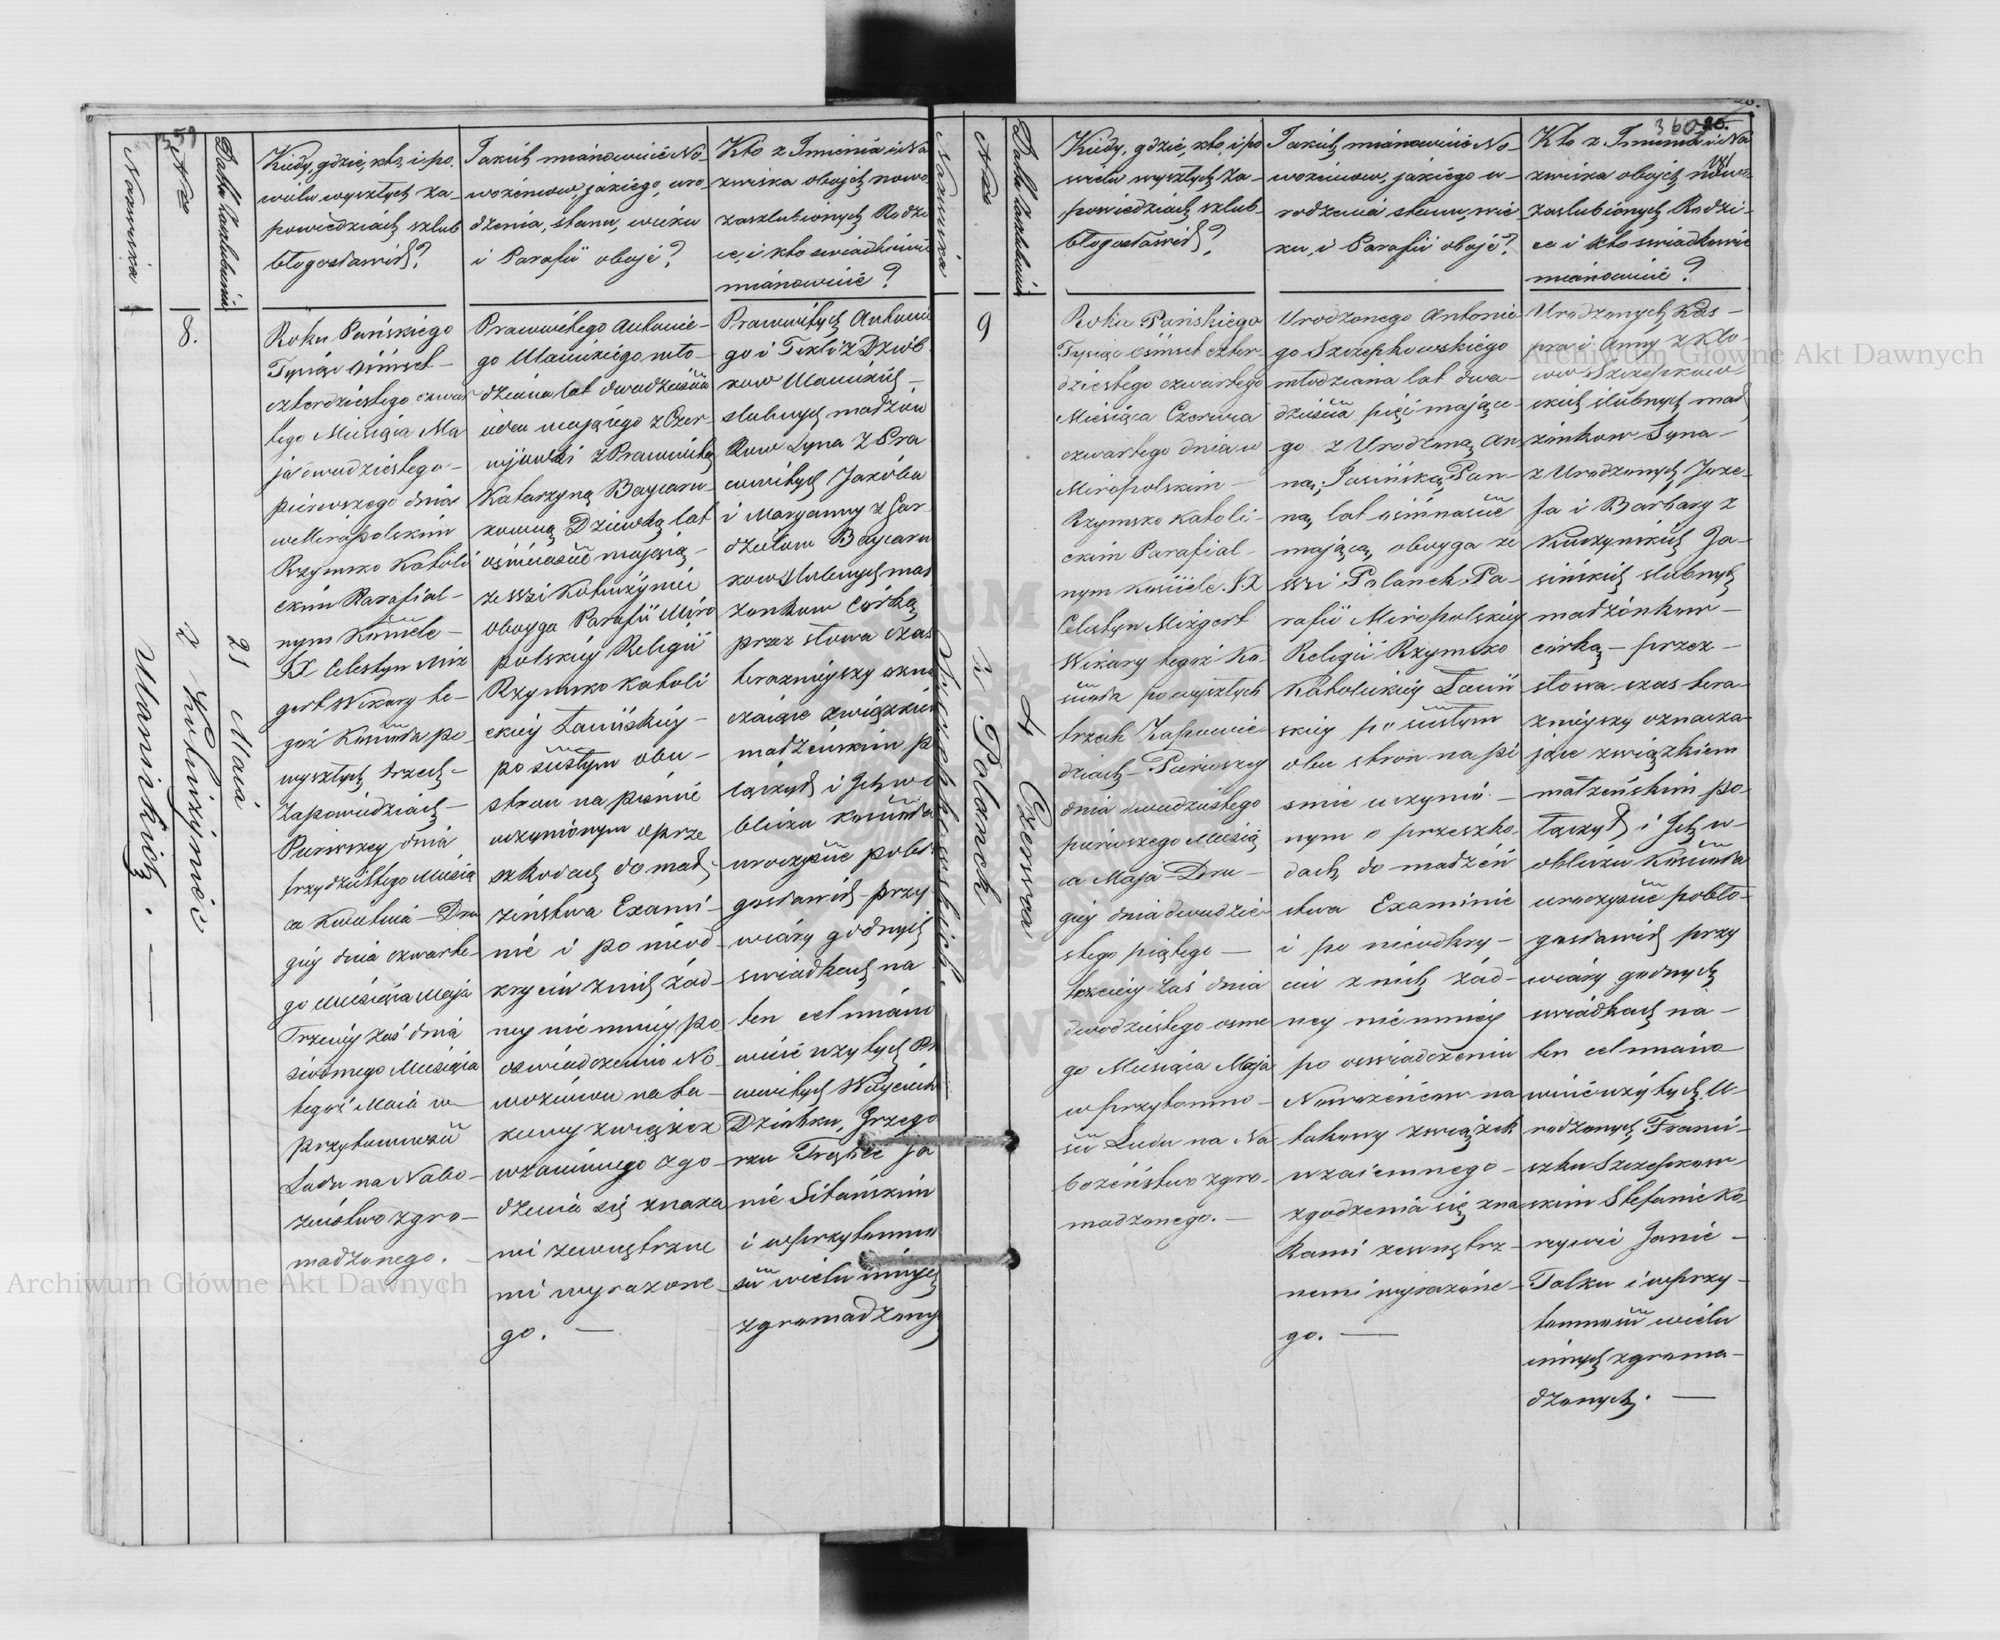 359
Nazwiska
Nro
Data Zaszlubienia
Kiedy, gdzie, kto, i po
wielu wyszłych za-
powiedziach szlub
błogosławił?
Jakich mianowicie No-
wożeńców, jakiego, uro
dzenia, stanu, wieku
i Parafii oboje?
Kto z Imienia i Na
zwiska obojch nowo
zaszlubionych Rodzi
ce, i kto swiadkowie
mianowicie?
8.
21 Maia
z Kotużyniec
Roku Pańskiego
Tysiąc óśmset-
czterdziestego czwar
tego Miesiąca Ma
ja dwudziestego-
pierwszego dnia
w Miropolskim
Rzymsko Katoli
ckim Parafial-
nym Kościele-
JX Celestyn Miz
gert Wikary te-
goż Kościoła po-
wyszłych trzech-
Zapowiedziach-
Pierwszey dnia
trzydziestego Miesią
ca Kwietnia - Dru
giéy dnia czwarte-
go Miesiąca Maja
Trzeciéy zaś dnia
siódmego Miesiąca
tegoż Maia w-
przytomności
Ludu na Nabo-
żeństwo zgro-
madzonego.-
Prawowitego Antonie-
go
mło-
dziana lat dwadzieścia
jeden mającego z
Prawowitą
Katarzyną
Dziewką lat
ośmnaście mającą-
ze wsi Kotiużyniec
oboyga Parafii Miro
polskiéy Religii
Rzymsko Katoli
ckiéy Łacińskiéy-
po ścisłym obu-
stron na piśmie
uczynionym o prze
szkodach do małż-
żeństwa Exami-
nie i po nieod-
kryciu z nich żad-
ney nie mniéy po
oswiadczeniu No-
wożeńców na ta-
kowy związek
wzaiemnego zgo-
dzenia się znaka
mi zewnętrzne
mi wyrażone-
go.-
Prawowitych Antoni
go i Tekli z
ków
slubnych małżon
ków Syna z Pra
wowitych Jakóba
i Maryanny z
ków slubnych mał
żonków Córką
przez słowa czas
teraznieyszy ozna
czaiące związkiem
małżeńskim po
łączył i Ich w o
bliczu Kościoła
uroczyście pobło
gosławił przy
wiary godnych
swiadkach na
ten cel miano
wicie użytych
wowitych Woyciechu
Grzego
rzu
Ja
nie
i w przytomno
ści wielu innych
zgromadzonych
360
Nazwiska
Nro
Data Zaszlubienia
Kiedy, gdzie, kto, i po
wielu wyszłych Za-
powiedziach szlub-
błogosławił?
Jakich mianowicie No-
wożeńców, jakiego u-
rodzenia stanu, wie
ku, i Parafii oboje?
Kto z Imienia i Na
zwiska obojch nowo-
zaslubionych Rodzi-
ce i kto swiadkowie
mianowicie?
9
4 Czerwca
z Polanek
Roku Pańskiego
Tysiąc óśmset czter-
dziestego czwartego
Miesiąca Czerwca
czwartego dnia w
Miropolskim-
Rzymsko Katoli-
ckim Parafial-
nym Kościele J.X
Celestyn Mizgert
Wikary tegoż Ko-
ścioła po wyszłych
trzech Zapowie
dziach - Pierwszey
dnia dwudziestego
pierwszego Miesią
ca Maja Dru-
giéy dnia dwudzie-
stego piątego-
trzeciéy zaś dnia
dwudziestego osme
go Miesiąca Maja
w przytomno-
ści Ludu na Na
bożeństwo zgro-
madzonego.-
Urodzonego Antonie
go Szczepkowskiego
młodziana lat dwa-
dzieścia pięć mające-
go z Urodzoną An
ną, Jasińską, Pan-
ną, lat ośmnaście
mającą, oboyga ze
wsi Polanek Pa-
rafii Miropolskiéy
Religii Rzymsko
Katolickiéy Łaciń
skiéy po ścisłym
obu stron na pi
śmie uczynio-
nym o przeszko-
dach do małżeń
stwa Examinie
i po nieodkry-
ciu z nich żad-
ney nie mniéy
po oswiadczeniu
Nowożeńców na
takowy związek
wzaiemnego-
zgodzenia się zna
kami zewnętrz-
nemi wyrażone-
go.-
Urodzonych Kas-
pra i Anny z Kło-
ców Szczepkow-
skich slubnych mał
żonków Syna-
z Urodzonych Joze-
fa i Barbary z
Ja-
sińskich slubnych
małżonków-
córką - przez-
słowa czas tera-
znieyszy oznacza-
jące związkiem
małżeńskim po-
łączył i Ich w-
obliczu Kościoła
uroczyście pobło-
gosławił przy
wiary godnych
swiadkach na-
ten cel miano-
wicie użytych U-
rodzonych Franci-
szku Szczepkow-
skim Stefanie Ko-
Janie-
Talku i w przy-
tomności wielu
innych zgroma-
dzonych.-
Archiwum Główne Akt Dawnych
Archiwum Główne Akt Dawnych